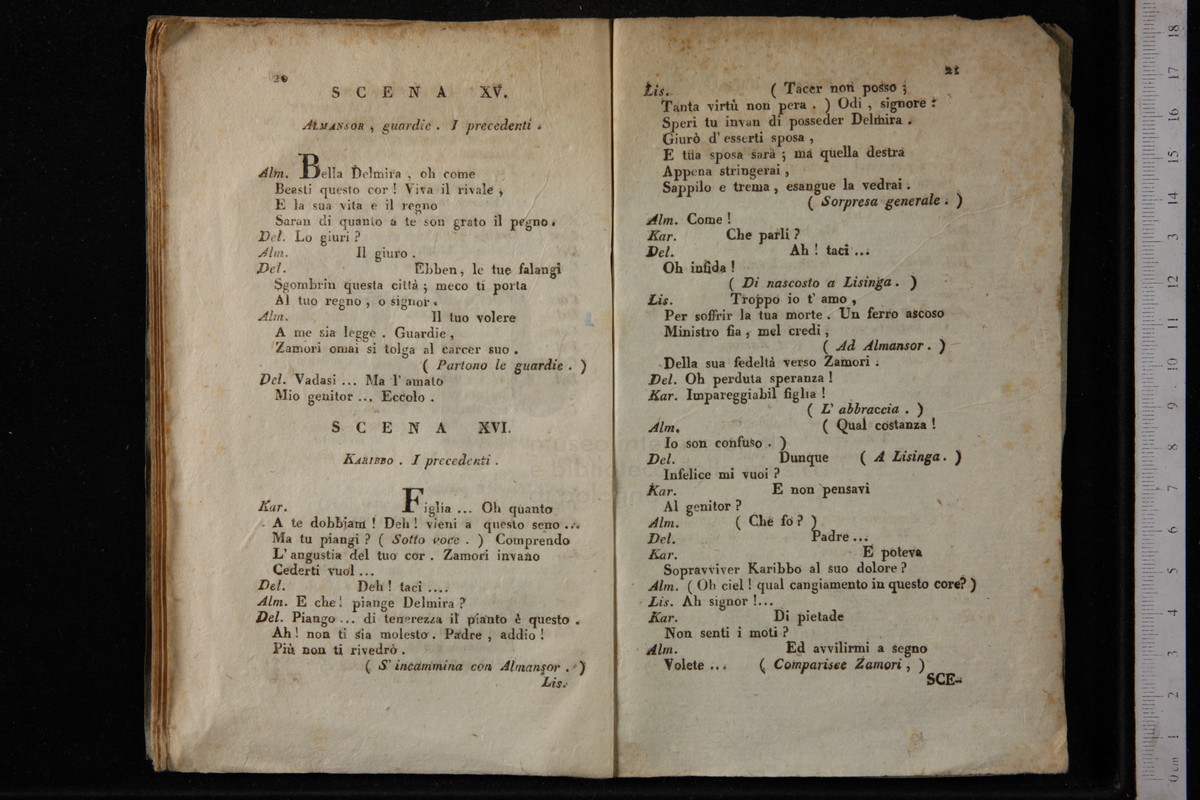 20
SCENA XV.
ALMANSOR , guardie . I precedenti .
Alm. Bella Delmira , oh come
Beasti questo cor ! Viva il rivale ,
E la sua vita e il regno
Saran di quanto a te son grato il pegno .
Del. Lo giuri ?
Alm. Il giuro .
Del. Ebben , le tue falangi
Sgombrin questa città ; meco ti porta
Al tuo regno , o signor .
Alm. Il tuo volere
A me sia legge . Guardie ,
Zamori omai si tolga al carcer suo .
( Partono le guardie . )
Del. Vadasi ... Ma l' amato
Mio genitor ... Eccolo .
SCENA XVI.
KARIBBO . I precedenti .
Kar. Figlia ... Oh quanto
A te dobbiam ! Deh ! vieni a questo seno ...
Ma tu piangi ? ( Sotto voce . ) Comprendo
L' angustia del tuo cor . Zamori invano
Cederti vuol ...
Del. Deh ! taci ....
Alm. E che ! piange Delmira ?
Del. Piango ... di tenerezza il pianto è questo .
Ah ! non ti sia molesto . Padre , addio !
Più non ti rivedrò .
( S' incammina con Almansor . )
Lis.
21
Lis. ( Tacer non posso ;
Tanta virtù non pera . ) Odi , signore :
Speri tu invan di posseder Delmira .
Giurò d' esserti sposa ,
E tua sposa sarà ; ma quella destra
Appena stringerai ,
Sappilo e trema , esangue la vedrai .
( Sorpresa generale . )
Alm. Come !
Kar. Che parli ?
Del. Ah ! taci ...
Oh infida !
( Di nascosto a Lisinga . )
Lis. Troppo io t' amo ,
Per soffrir la tua morte . Un ferro ascoso
Ministro fia , mel credi ,
( Ad Almansor . )
Della sua fedeltà verso Zamori .
Del. Oh perduta speranza !
Kar. Impareggiabil figlia !
( L' abbraccia . )
Alm. ( Qual costanza !
Io son confuso . )
Del. Dunque ( A Lisinga . )
Infelice mi vuoi ?
Kar. E non pensavi
Al genitor ?
Alm. ( Che fo ? )
Del. Padre ...
Kar. E poteva
Sopravviver Karibbo al suo dolore ?
Alm. ( Oh ciel ! qual cangiamento in questo core ? )
Lis. Ah signor !...
Kar. Di pietade
Non senti i moti ?
Alm. Ed avvilirmi a segno
Volete ... ( Comparisce Zamori , )
SCE-